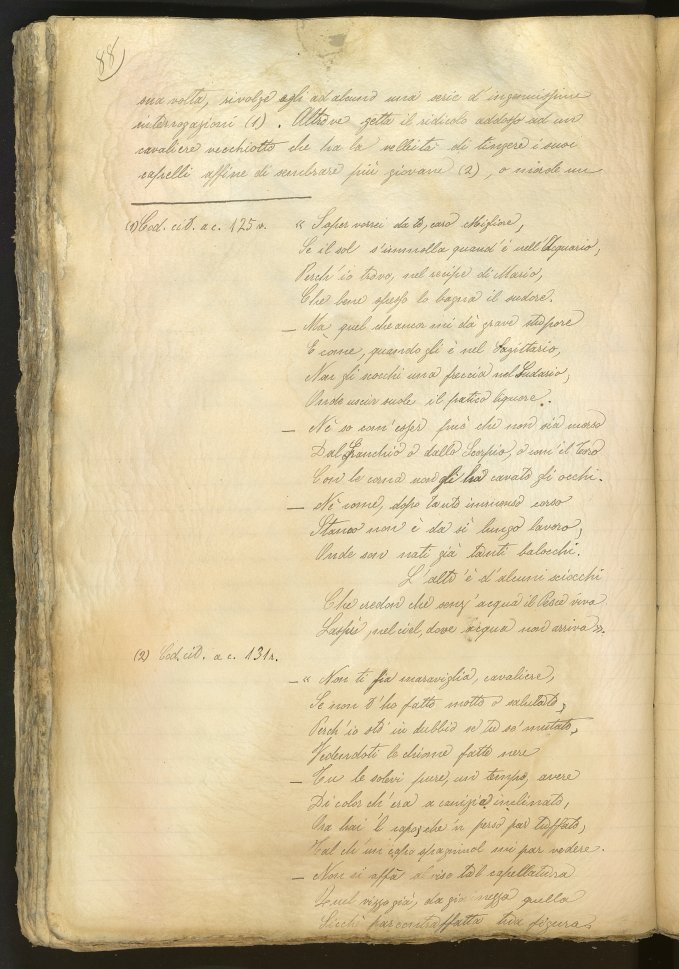 88)
sua volta, rivolge egli ad alcuno una serie d'ingenuissime
interrogazioni (1). Altrove getta il ridicolo addosso ad un
cavaliere vecchiotto che ha la velleità di tingere i suoi
capelli affine di sembrare più giovane (2), o morde un
(1) Cod. cit. a c. 125 v. « Saper vorrei da te, caro Migliore,
Se il sol s'immolla quand'è nell'Acquario,
Perch'io trovo, nel di Mario,
Che bene spesso lo bagna il sudore.
— Ma quel che ancor mi dà grave stupore
È come, quando gli è nel Sagittario,
Non gli scocchi una freccia nel Sudario,
Onde uscir suole il patico liquore.
— Nè so com'esser può che non sia morso
Dal Granchio o dallo Scorpio, o com'il Toro
Con le corna non gli ha cavato gli occhi.
— Nè come, dopo tanto immenso corso
Stanco non è da sì lungo lavoro,
Onde son nati già tanti balocchi.
L'altr'è d'alcuni sciocchi
Che credon che senz'acqua il Pesce viva
Lassù, nel ciel, dove acqua non arriva».
(2) Cod. cit. a c. 131 r.
— « Non ti sia maraviglia, cavaliere,
Se non t'ho fatto motto o salutato,
Perch'io stò in dubbio se tu se' mutato,
Vedendoti le chiome fatte nere
— Tu le solevi pure, un tempo, avere
Di color ch'era a canizie inclinato,
Ora hai 'l capo, che 'n par tuffato,
Tal ch'un capo spagnuol mi par vedere.
— Non si affà al viso tal capellatura
già, da già mezza quella
Sicchè par contraffatta tua figura